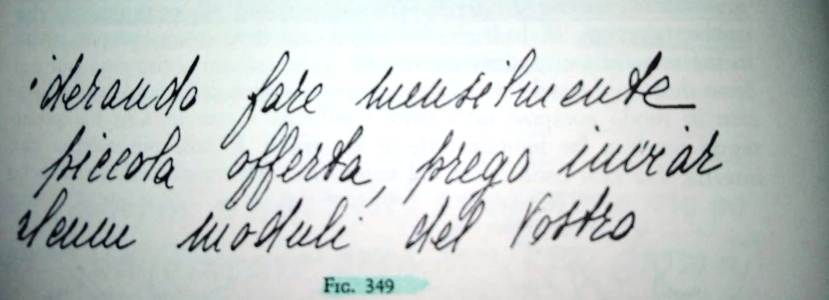 iderando fare mensilmente
piccola offerta, prego inviar
lcuni moduli del Vostro
FIG. 349